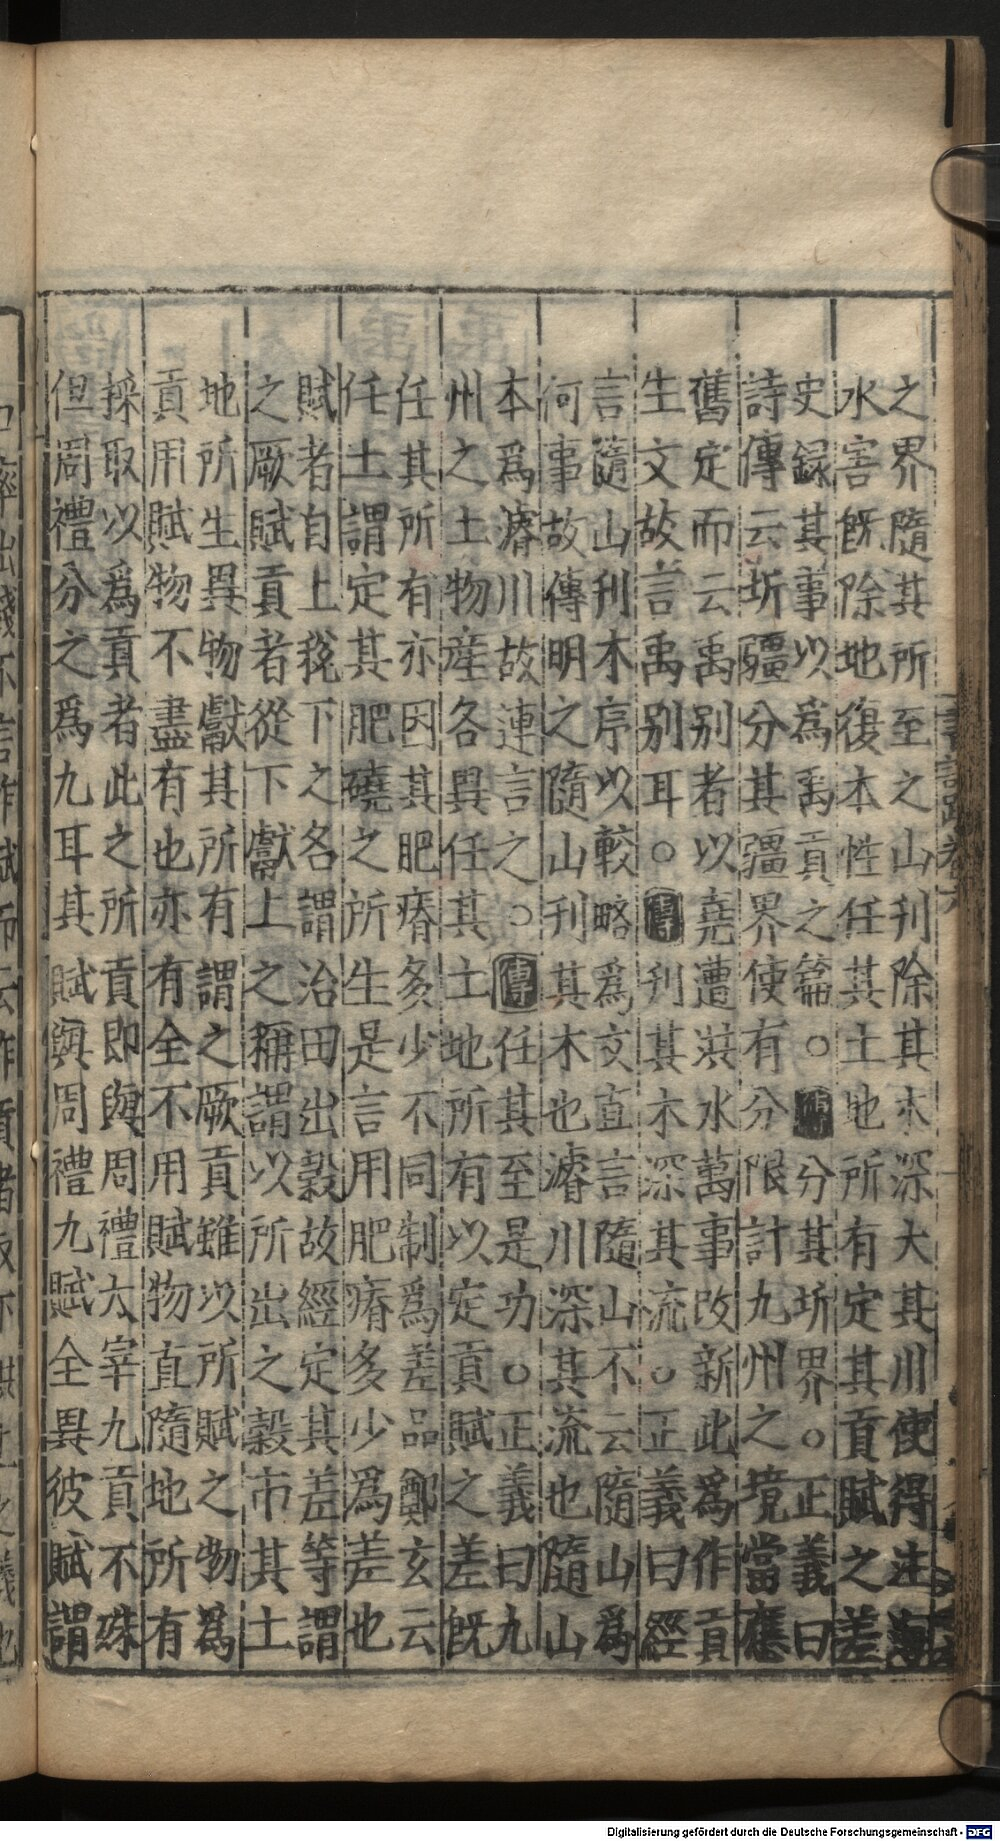 之界隨其所至之山刊除其木深大其川使得注海
水害旣除地復本性任其土地所有定其貢賦之差
史録其事以爲禹貢之篇○傳分其圻界○正義曰
詩傳云圻疆分其疆界使有分限計九州之境當應
舊定而云禹别者以堯遭洪水萬事改新此爲作貢
生文故言禹别耳○傳刊其木深其流○正義曰經
言隨山刊木序以較略爲文直言隨山不云隨山爲
何事故傳明之隨山刊其木也濬川深其流也隨山
本爲濬川故連言之○傳任其至是功○正義曰九
州之土物産各異任其土地所有以定貢賦之差旣
任其所有亦因其肥瘠多少不同制爲差品鄭玄云
任土謂定其肥磽之所生是言用肥瘠多少爲差也
賦者自上稅下之名謂治田出穀故經定其差等謂
之厥賦貢者從下獻上之稱謂以所出之穀市其土
地所生異物獻其所有謂之厥貢雖以所賦之物爲
貢用賦物不盡有也亦有全不用賦物直隨地所有
採取以爲貢者此之所貢即與周禮太宰九貢不殊
但周禮分之爲九耳其賦與周禮九賦全異彼賦謂
Digitalisierung gefördert durch die Deutsche Forschungsgemeinschaft - DFG